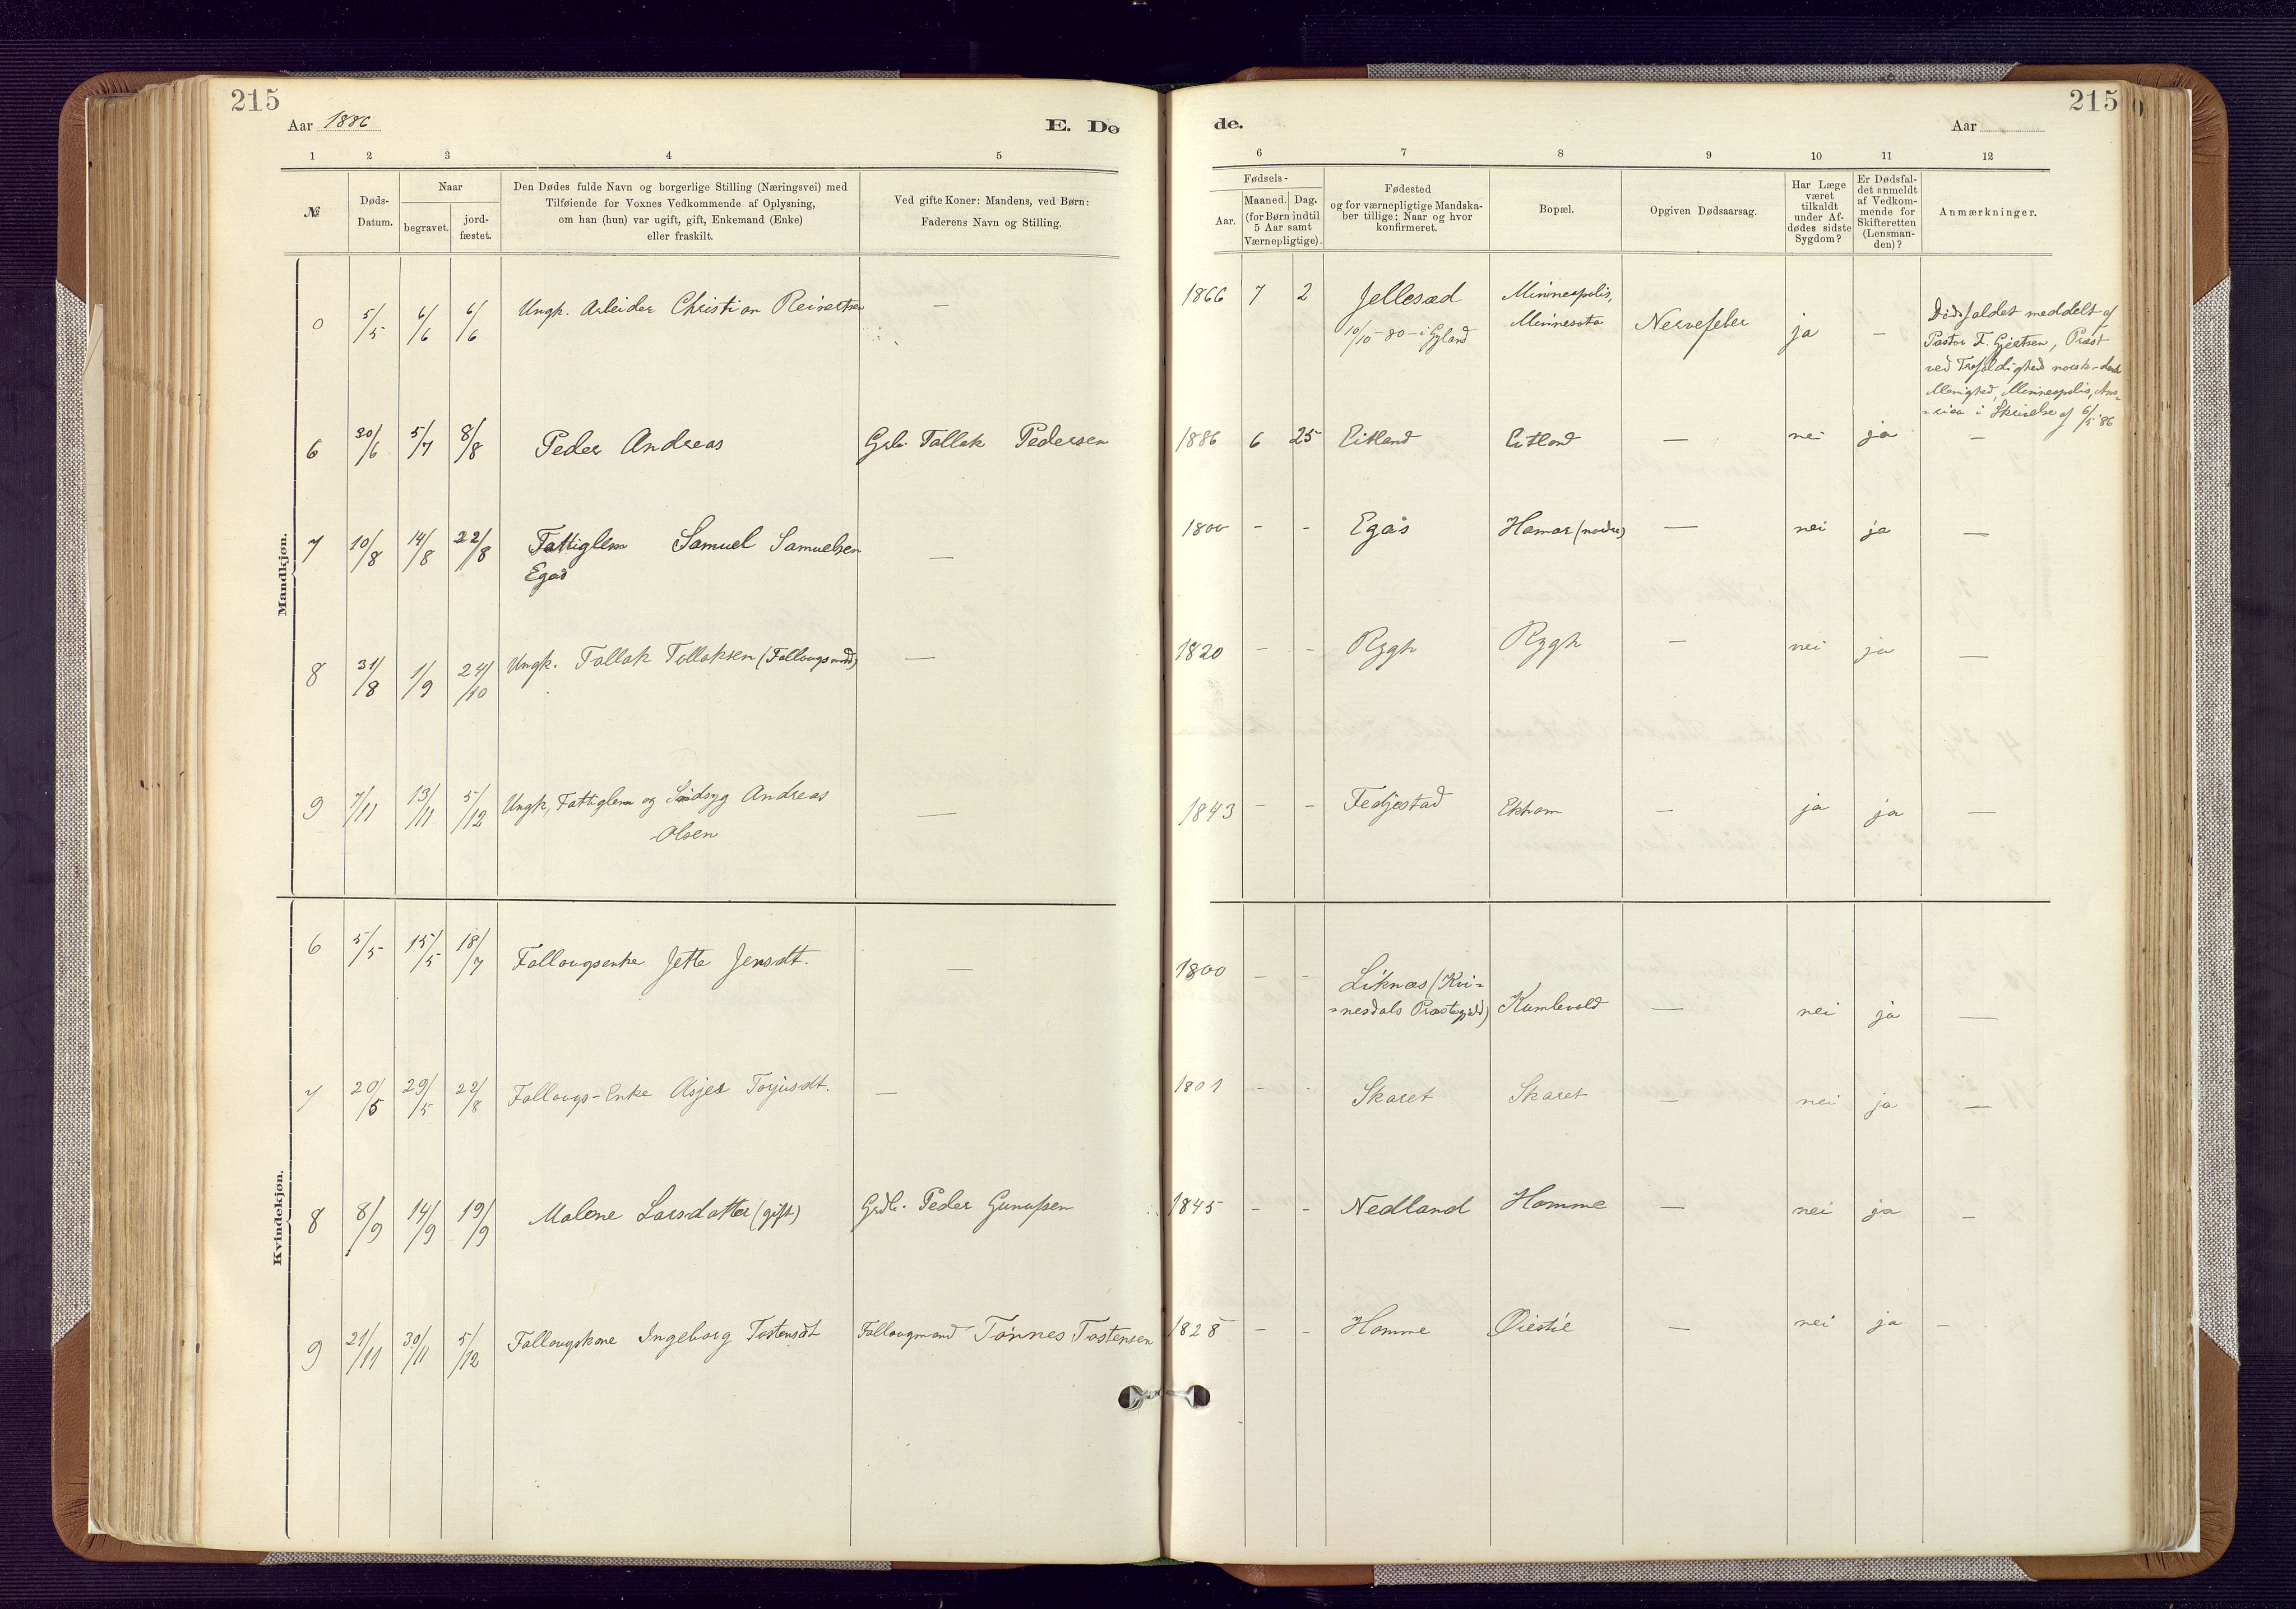 215
Aar 1886
E. Dø
1 2 3 4 5
№
Døds-
Datum.
Naar
begravet.
jord-
fæstet.
Den Dødes fulde Navn og borgerlige Stilling (Næringsvei) med
Tilføiende for Voxnes Vedkommende af Oplysning,
om han (hun) var ugift, gift, Enkemand (Enke)
eller fraskilt.
Ved gifte Koner: Mandens, ved Børn:
Faderens Navn og Stilling.
Mandkjøn.
0 5/5 6/6 6/6 Ungk. Arbeider Christian Reinertsen —
6 30/6 5/7 8/8 Peder Andreas Grb. Tallak Pedersen
7 10/8 14/8 22/8 Fattiglem Samuel Samuelsen —
Egas
8 31/8 1/9 24/10 Ungk. Tallak Tallaksen (Follaugsmand) —
9 7/11 13/11 5/12 Ungk, Fattiglem og Sindsyg Andreas —
Olsen
Kvindekjøn.
6 5/5 15/5 18/7 Follaugsenke Jette Jensdt. —
7 20/5 29/5 22/8 Follaugs-Enke Asjer Torjusdt. —
8 8/9 14/9 19/9 Malene Larsdatter (gift) Grdb. Peder Gunufsen
9 21/11 30/11 5/12 Follaugskone Ingeborg Tostensdt Follaugmand Tønnes Tostensen
215
de.
Aar
6 7 8 9 10 11 12
Fødsels-
Aar.
Maaned. Dag.
(for Børn indtil
5 Aar samt
Værnepligtige).
Fødested
og for værnepligtige Mandska-
ber tillige: Naar og hvor
konfirmeret.
Bopæl.
Opgiven Dødsaarsag.
Har Læge
været
tilkaldt
under Af-
dødes sidste
Sygdom?
Er Dødsfal-
det anmeldt
af Vedkom-
mende for
Skifteretten
(Lensman-
den)?
Anmærkninger.
1866 7 2 Jellesæd Minneapolis,
10/10-80-i Gyland Minnesota Nervefeber ja —
Dødsfaldet meddelt af
Pastor F. Gjertsen, Præst
ved Trefoldighed norsk-dansk
Menighed, Minneapolis, Ame-
-rica i Skrivelse af 6/5 86
1886 6 25 Eitland Eitland — nei ja —
1800 - - Egås Hamar (nordre) — nei ja —
1820 - - Rygh Rygh — nei ja —
1843 - - Fedjestad Ekhom — ja ja —
1800 - - Liknæs (Kvi-
-nesdals Præstegjeld) Kumlevold — nei ja —
1801 - - Skaret Skaret — nei ja —
1845 - - Nedland Homme — nei ja —
1828 - - Homme Øiestøl — nei ja —